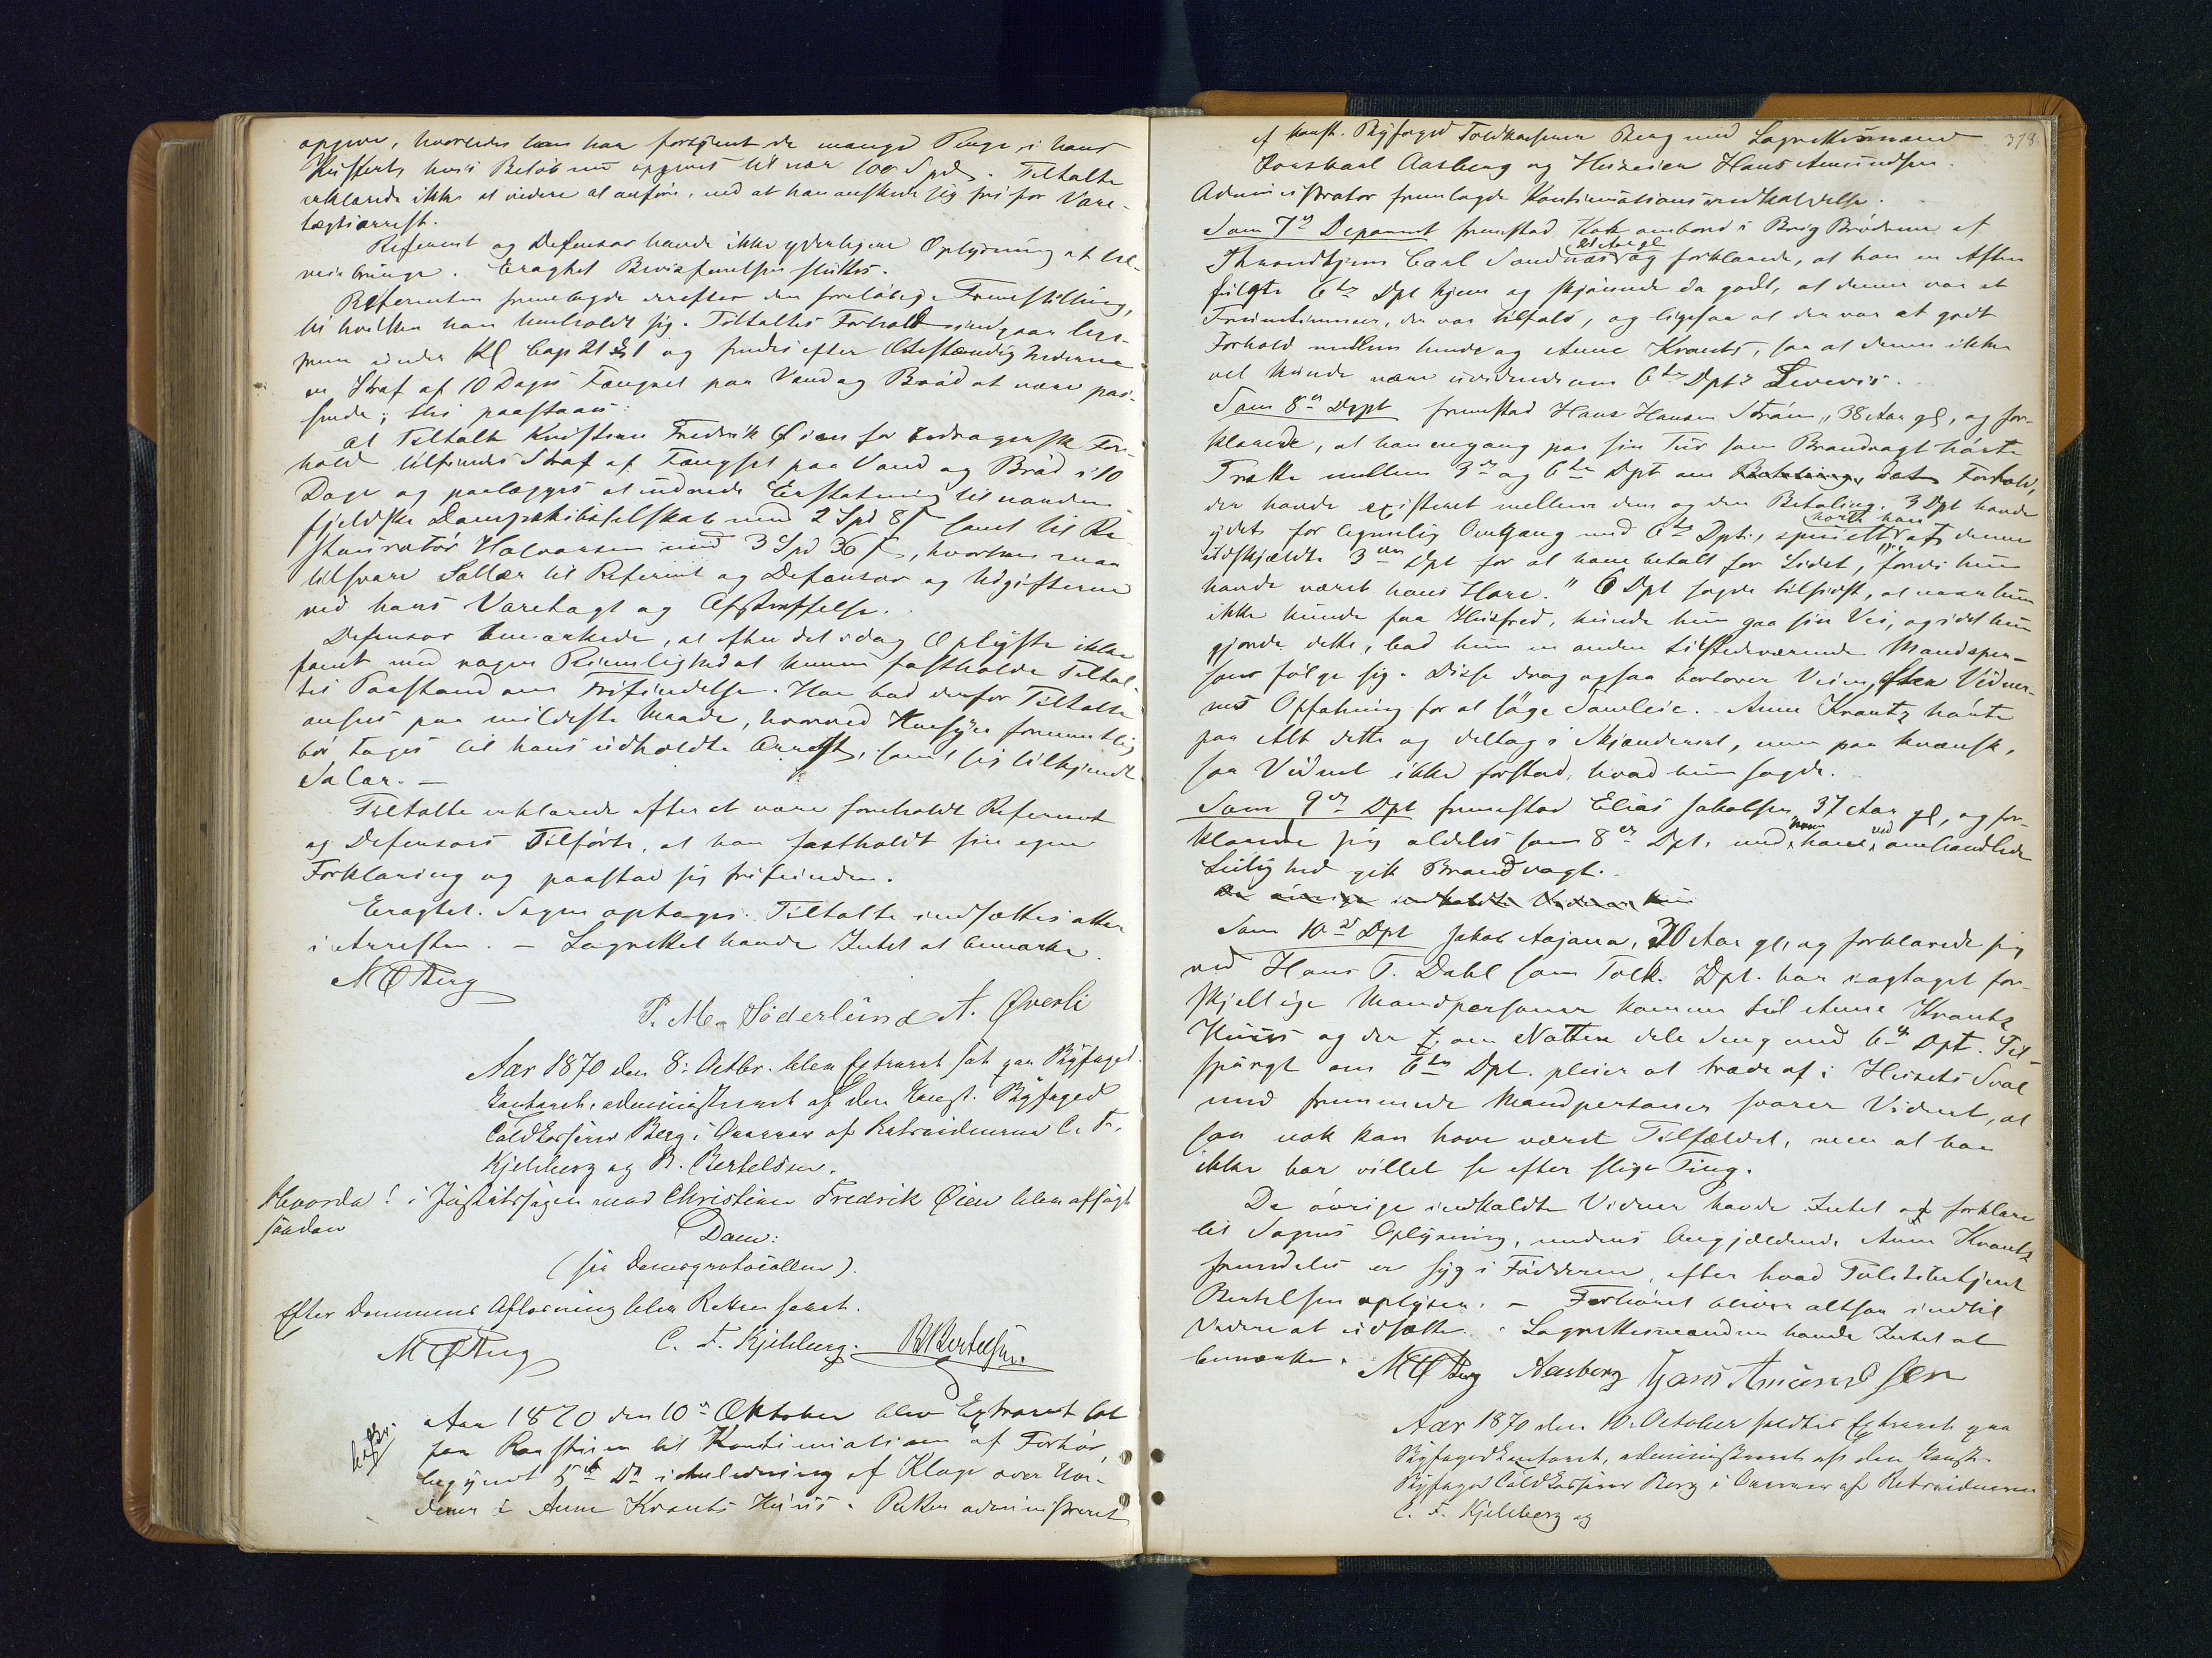 opgive, hvorledes han har fortjent de mange Penge, i hans
Kuffert, hvis Beløb nu opgives til nær 100 Spd. Tiltalte
erklærede ikke et videre at anføre, end at han ønskede sig fri for Vare-
tægtsarrest.
Referent og Defensor havde ikke yderligere Oplysning at til-
veiebringe. Eragtet Bevisførelsen sluttes.
Referenten fremlagde derefter den foreløbige Fremstilling,
til hvilken han henholdt sig. Tiltaltes Forhold indgaar lige-
frem under Kl Cap 21 § 1 og findes efter Omstændighederne
en Straf af 10 Dages Fængsel paa Vand og Brød at være pas-
sende; thi paastaaes:
at Tiltalte Kristian Fredrik Øien for bedragersk For-
hold tilfindes Straf af Fængsel paa Vand og Brød i 10
Dage og paalægges at udrede Erstatning til norden-
fjeldske Dampskibsselskab med 2 Spd 8 s samt til Re-
stauratør Halvorsen med 3 Spd 36 s, hvorhos maa
tilsvare Sallær til Referent og Defensor og Udgifterne
ved hans Varetægt og Afstraffelse.
Defensor bemærkede, at efter det idag Oplyste ikke
fandt med nogen Rimelighed at kunne fastholde Tiltal-
tes Paastand om Frifindelse. Han bad derfor Tiltalte
anseet paa mildeste Maade, hvorved Hensyn formentlig
bør tages til hans udholdte Arrest, samt sig tilkjendt
Salær. —
Tiltalte erklærede efter at være foreholdt Referent
og Defensors Tilførte, at han fastholdt sin egen
Forklaring og paastod sig frifunden.
Eragtet. Sagen optages. Tiltalte indsættes atter
i Arresten. — Lagrettet havde Intet at bemærke.
M Ø Berg
P. M. Søderlund A. Øverli
Aar 1870 den 8: Octbr. blev Extraret sat paa Byfoged-
Contoret, administreret af den konst. Byfoged
Toldkasserer Berg i Overvær af Retsvidnerne C. F.
Kjeldberg og B. Bertelsen.
Hvorda! i Justitssagen mod Christian Fredrik Øien blev afsagt
saadan
Dom:
(se Domsprotocollen).
Efter Dommens Aflæsning blev Retten hævet.
M Ø Berg C. F. Kjeldberg. B. Bertelsen
Aar 1870 den 10de Oktober blev Extraret sat
paa Raadstuen til Kontinuation af Forhør,
begyndt 5te Ds i Anledning af Klage over Uor-
dener i Anne Krantz Huus. Retten administreret
378
af konst. Byfoged Toldkasserer Berg med Lagrettesmænd
Forstkand Aasberg og Huseier Hans Amundsen.
Administrator fremlagde Kontinuationsindkaldelse.
Som 7de Deponent fremstod Kok ombord i Brig Brødrene af
Throndhjem Carl Sandnæs 21 Aar gl og forklarede, at han en Aften
fulgte 6te Dpt hjem og skjønnede da godt, at denne var et
Fruentimmer, der var tilfals, og ligesaa at der var et godt
Forhold mellem hende og Anne Krantz, saa at denne ikke
vel kunde være uvidende om 6te Dpts Levevis.
Som 8de Dept fremstod Hans Hansen Strøm, 38 Aar gl, og for-
klarede, at han engang paa sin Tur som Brandvagt hørte
Trætte mellem 3de og 6te Dpt om Betaling, det Forhold,
der havde existeret mellem dem og den Betaling. 3 Dpt havde
ydet for legemlig Omgang med 6te Dpt, specielt hørte han at denne
udskjældte 3die Dpt for at have betalt for Lidet, "fordi hun
havde været hans Hore." 6 Dpt sagde tilsidst, at naar hun
ikke kunde faa Huusfred, kunde hun gaa sin Vei, og idet hun
gjorde dette, bad hun en anden tilstedeværende Mandsper-
son følge sig. Disse drog ogsaa bortover Veien, efter Vidner-
nes Opfatning for at søge Samleie. Anne Krantz hørte
paa Alt dette og deltog i Skjænderiet, men paa kvænsk,
saa Vidnet ikke forstod, hvad hun sagde.
Som 9de Dpt fremstod Elias Jakobsen, 37 Aar gl, og for-
klarede sig aldeles som 8de Dpt, med hvem han ved omhandlede
Leilighed gik Brandvagt.
De øvrige indkaldte Vidner hav
Som 10de Dpt Jakob Aajana, 30 Aar gl, og forklarede sig
ved Hans T. Dahl som Tolk. Dpt. har iagttaget for-
skjellige Mandspersoner komme til Anne Krantz
Huus og der om Natten dele Seng med 6te Dpt. Til-
spurgt om 6te Dpt. pleier at træde af i Husets Sval
med fremmede Mandspersoner svarer Vidnet, at
saa nok kan have været Tilfældet, men at han
ikke har villet se efter slige Ting.
De øvrige indkaldte Vidner havde Intet at forklare
til Sagens Oplysning, medens Angjældende Anne Krantz
fremdeles er syg i Fødderne, efter hvad Politibetjent
Bertelsen oplyser. — Forhøret bliver altsaa indtil
Videre at udsætte. Lagrettesmændene havde Intet at
bemærke. M Ø Berg Aasberg Hans Amundssen
Aar 1870 den 10. October holdtes Extraret paa
Byfogedcontoret, administreret af den konst.
Byfoged Toldkasserer Berg i Overvær af Retsvidnerne
C. F. Kjeldberg og